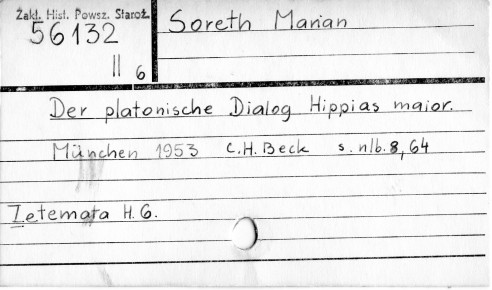 Zakł. Hist. Powsz. Staroż.
56132
II 6
Soreth Marian
Der platonische Dialog Hippias maior.
München 1953 C.H. Beck s. nlb. 8, 64
Zetemata H. 6.